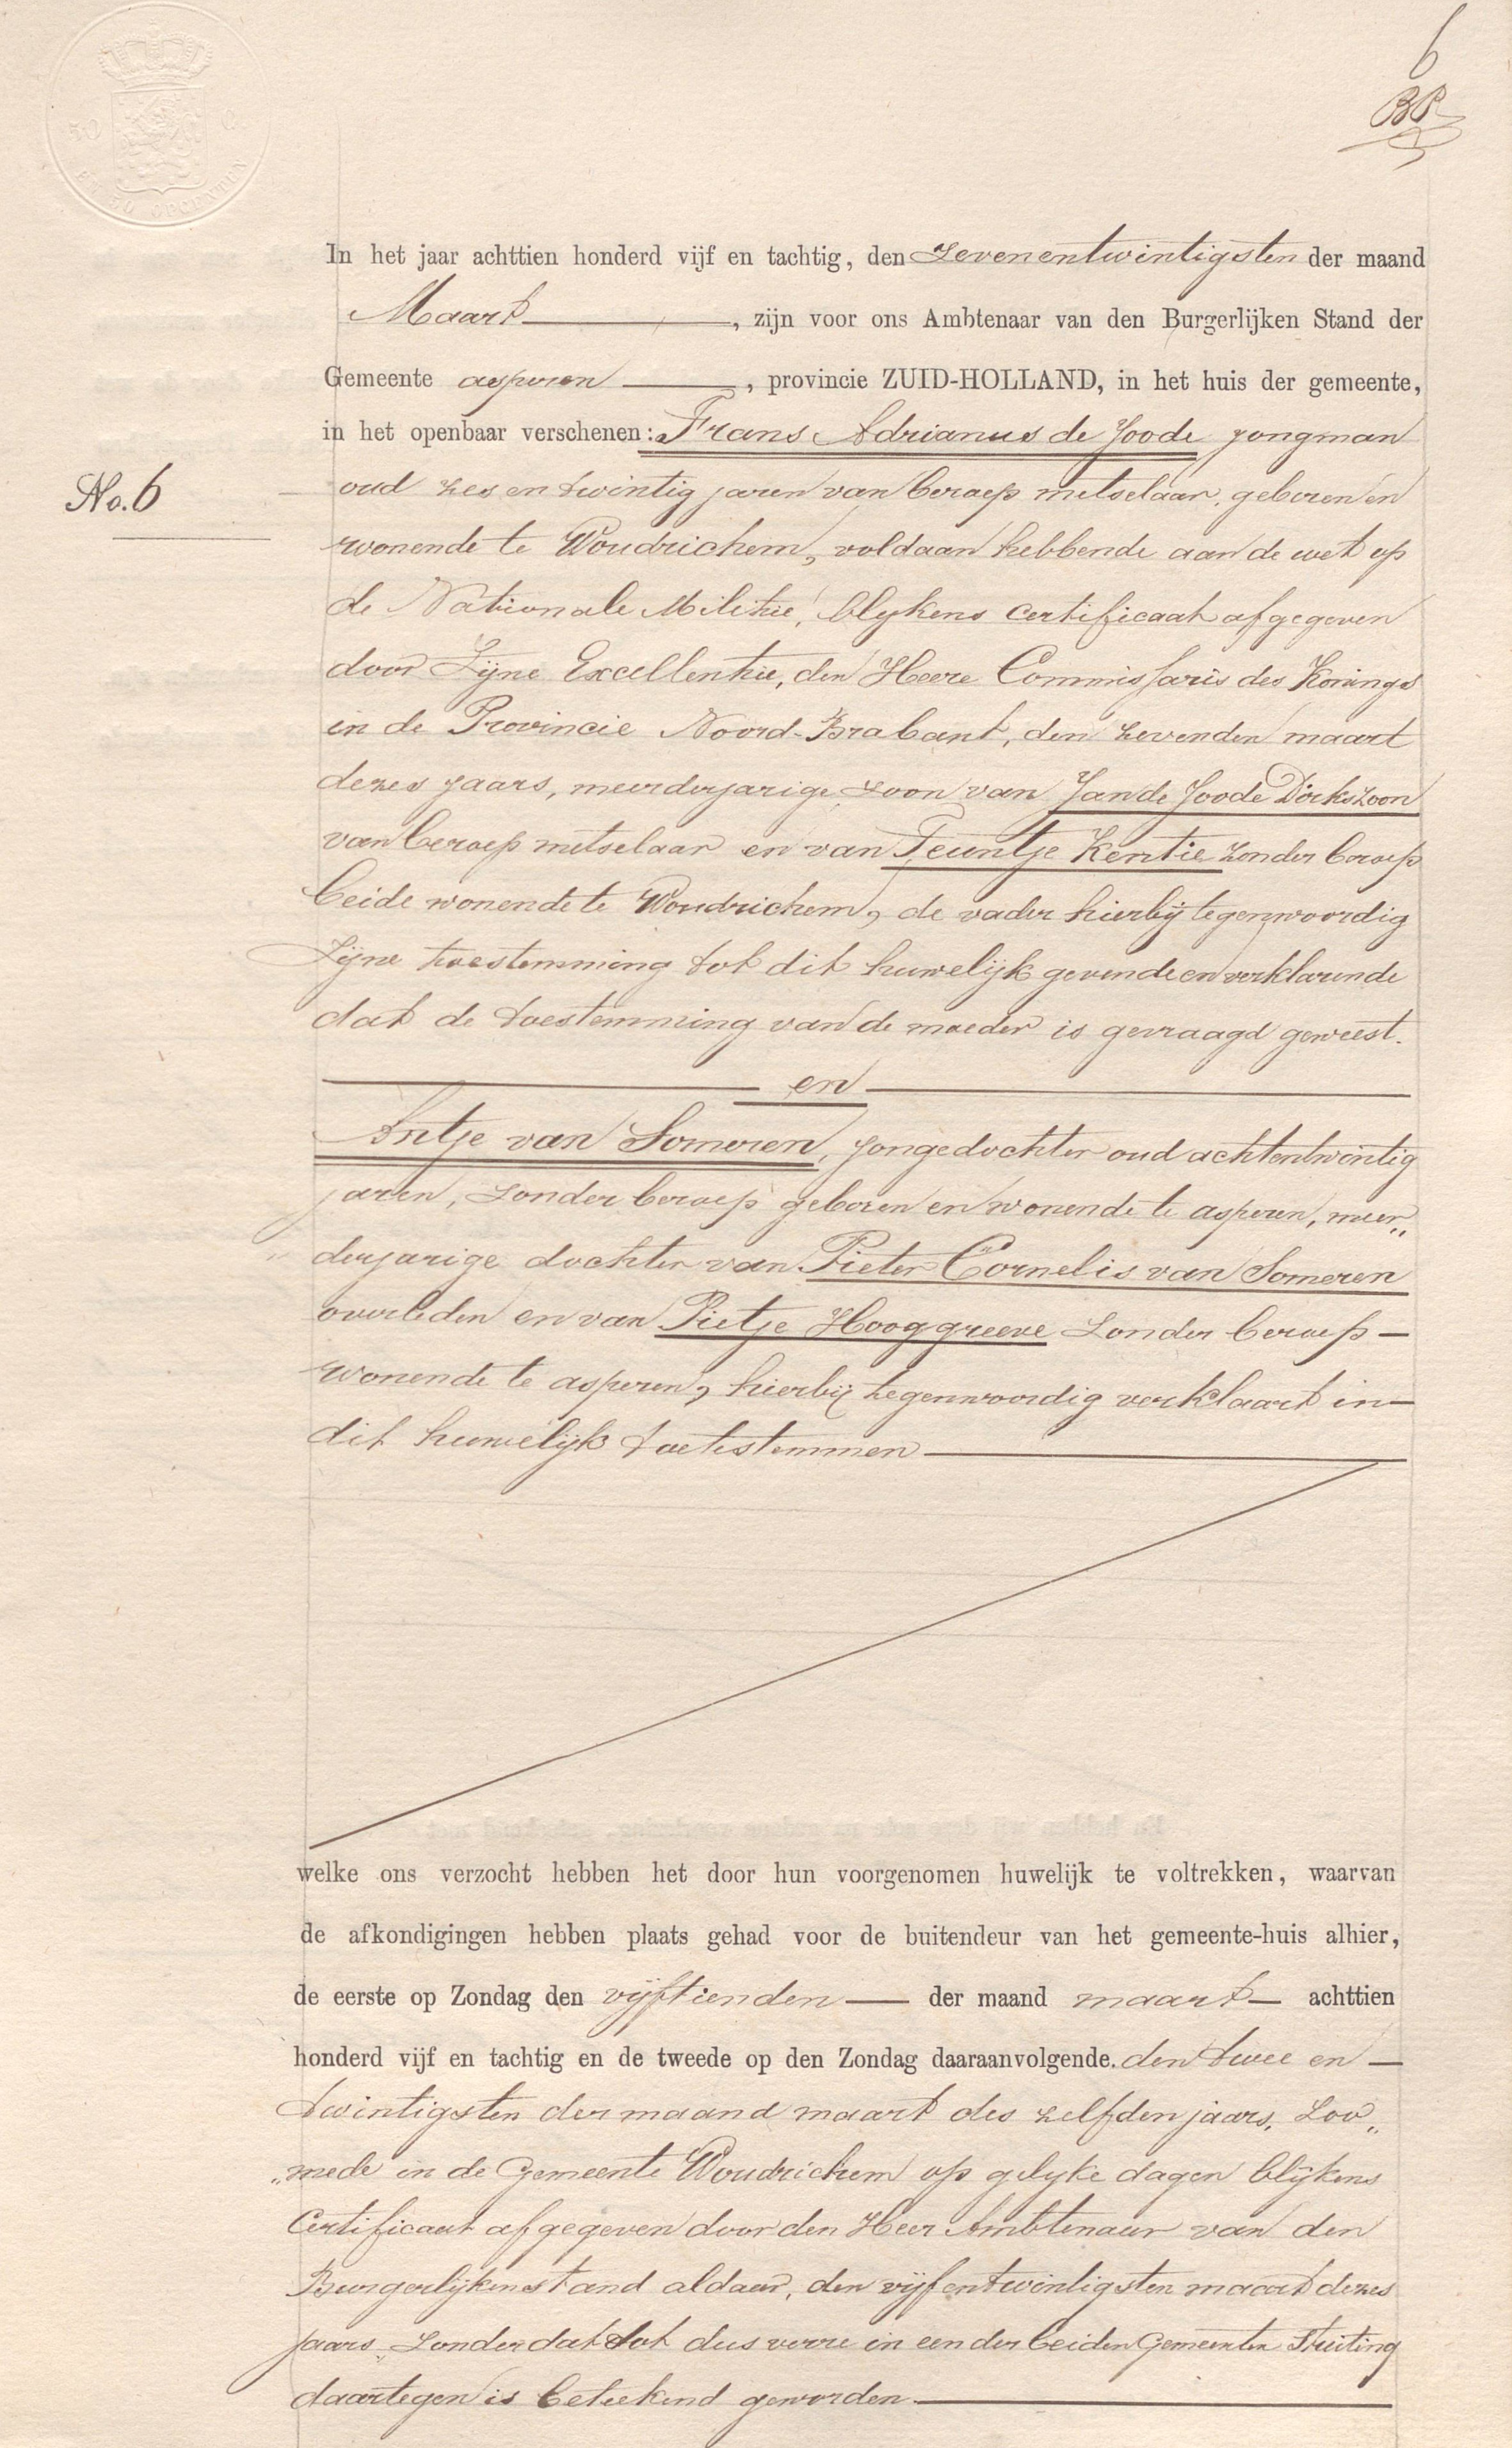 6
BP
In het jaar achttien honderd vijf en tachtig, den Zevenentwintigsten der maand
Maart, zijn voor ons Ambtenaar van den Burgerlijken Stand der
Gemeente asperen, provincie ZUID-HOLLAND, in het huis der gemeente,
in het openbaar verschenen: Frans Adrianus de Joode jongman
No. 6
oud zes en twintig jaren van beroep metselaar, geboren en
wonende te Woudrichem, voldaan hebbende aan de wet op
de Nationale Militie, blykens certificaat afgegeven
door Zijne Excellentie, den Heere Commissaris des Konings
in de Provincie Noord-Brabant, den zevenden maart
dezes jaars, meerderjarige zoon van Jan de Joode Dirkszoon
van beroep metselaar en van Teuntje Kentie zonder beroep
beide wonende te Woudrichem, de vader hierbij tegenwoordig
Zijne toestemming tot dit huwelijk gevende en verklarende
dat de toestemming van de moeder is gevraagd geweest.
en
Antje van Someren, jongedochter oud achtentwintig
jaren, zonder beroep geboren en wonende te asperen, meer„
„derjarige dochter van Pieter Cornelis van Someren
overleden en van Pietje Hooggreeve zonder beroep —
wonende te asperen, hierbij tegenwoordig verklaart in
dit huwelijk toetestemmen
welke ons verzocht hebben het door hun voorgenomen huwelijk te voltrekken, waarvan
de afkondigingen hebben plaats gehad voor de buitendeur van het gemeente-huis alhier,
de eerste op Zondag den vijftienden — der maand maart — achttien
honderd vijf en tachtig en de tweede op den Zondag daaraanvolgende. den twee en —
twintigsten der maand maart des zelfden jaars, Zoo„
„mede in de Gemeente Woudrichem op gelyke dagen blijkens
Certificaat afgegeven door den Heer Ambtenaar van den
Burgerlijkenstand aldaar, den vijfentwintigsten maart dezes
jaars, Zonder dat tot dus verre in een der beiden Gemeenten Stuiting
daartegen is beteekend geworden